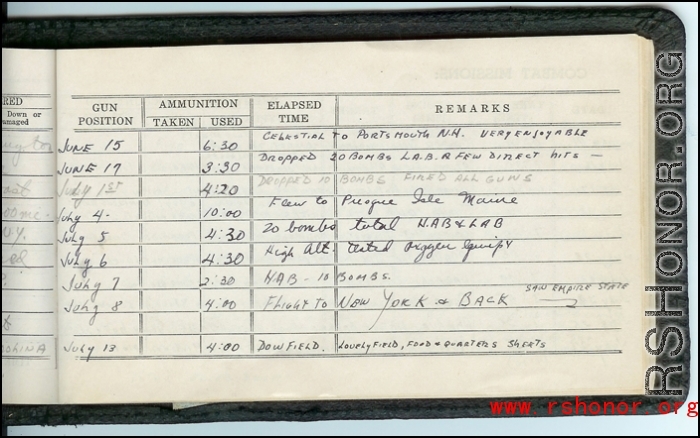 RED
Down or
amaged
GUN POSITION
AMMUNITION
TAKEN
USED
ELAPSED TIME
REMARKS
JUNE 15 6:30 CELESTIAL TO PORTSMOUTH N.H. VERY ENJOYABLE
JUNE 17 3:30 DROPPED 20 BOMBS L.A.B. A FEW DIRECT HITS —
July 1st 4:20 DROPPED 10 BOMBS FIRED ALL GUNS
July 4 - 10:00 Flew to Presque Isle Maine
July 5 4:30 20 bombs total H.AB & LAB
July 6 4:30 High Alt. tested Oxygen Equip
July 7 2:30 H.A.B - 10 BOMBS.
July 8 4:00 FLIGHT TO NEW YORK & BACK SAW EMPIRE STATE
July 13 4:00 DOW FIELD. LOVELY FIELD, FOOD & QUARTERS SHEETS
RSHONOR.ORG
www.rshonor.org